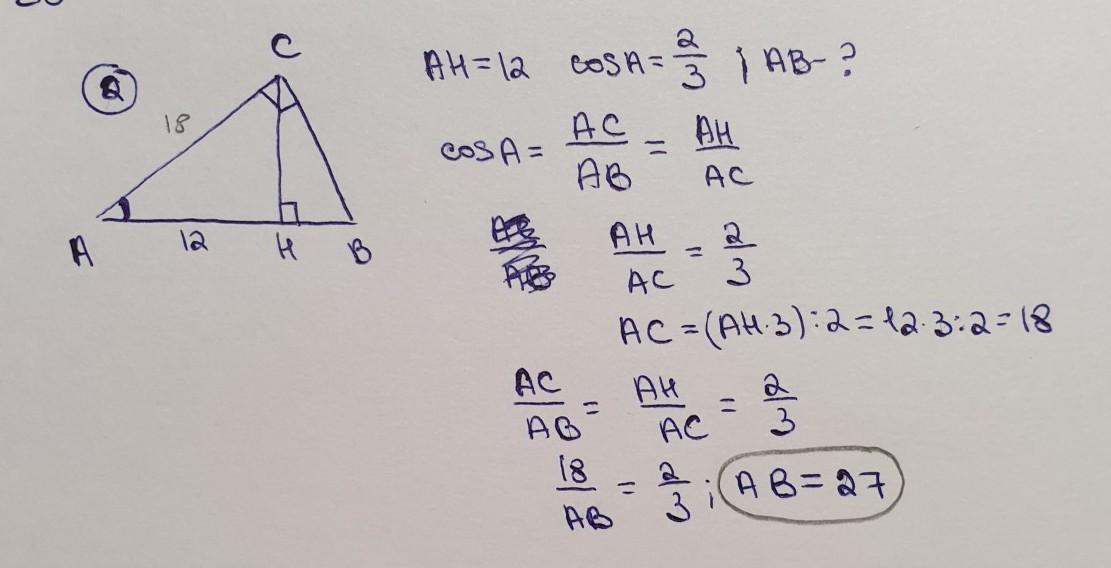 C
②
18
A
12
H
B
AH = 12 cos A = 2/3 ; AB - ?
cos A = AC/AB = AH/AC
AH/AC = 2/3
AC = (AH·3):2 = 12·3:2 = 18
AC/AB = AH/AC = 2/3
18/AB = 2/3 ; AB = 27